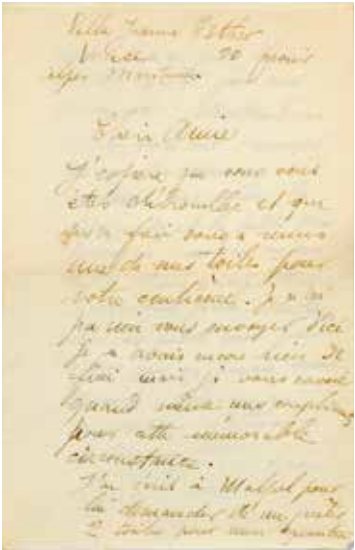 Villa Jeanne Esther
Nice 20 janvier
Alpes Maritimes.
Cher Amie
J'espère que vous vous
êtes débrouillée et que
fait
une de mes toiles pour
votre centième. Je n'ai
pas vous envoyer d'ici
Je n'avais encore rien de
mais je vous envoie
quand même mes compliments
pour cette mémorable
circonstance.
J'ai écrit à Malpel pour
lui demander de
2 toiles pour mon